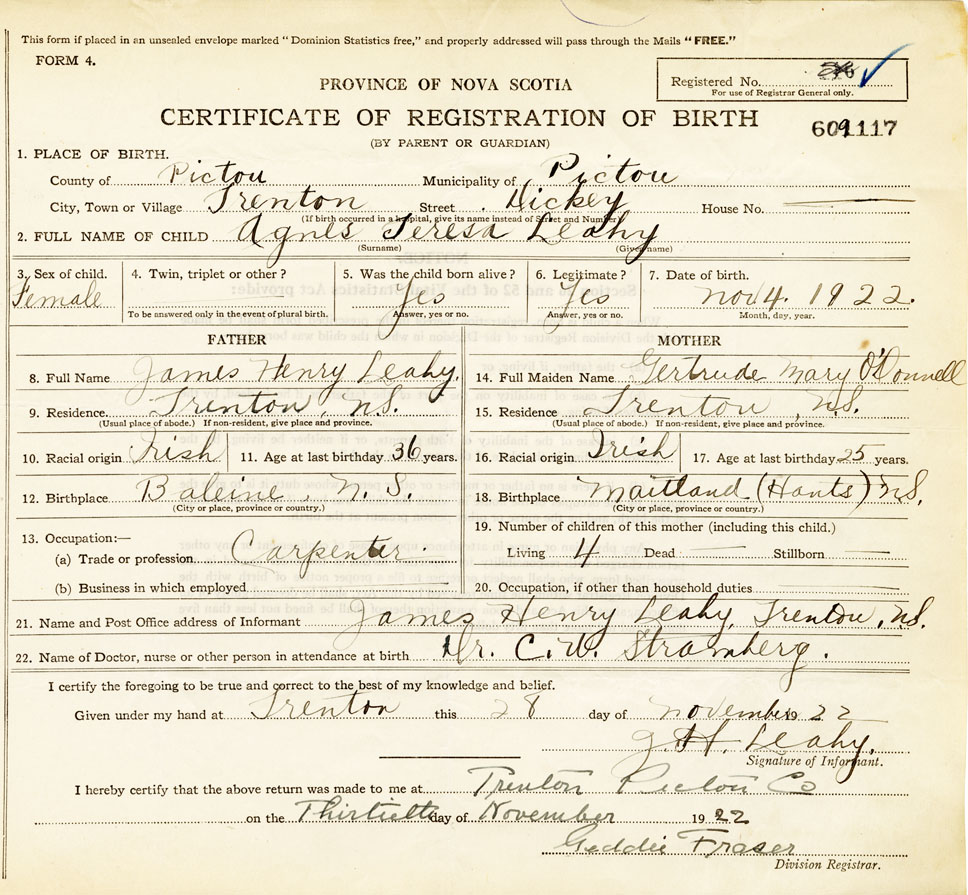 This form if placed in an unsealed envelope marked "Dominion Statistics free," and properly addressed will pass through the Mails "FREE."
FORM 4.
Registered No.
For use of Registrar General only.
PROVINCE OF NOVA SCOTIA
CERTIFICATE OF REGISTRATION OF BIRTH
(BY PARENT OR GUARDIAN)
1. PLACE OF BIRTH.
County of Pictou Municipality of Pictou
City, Town or Village Trenton Street Hickey House No.
(If birth occurred in a hospital, give its name instead of Street and Number)
2. FULL NAME OF CHILD Agnes Teresa Leahy
(Surname) (Given name)
3. Sex of child. 4. Twin, triplet or other? 5. Was the child born alive? 6. Legitimate? 7. Date of birth.
Female Yes Yes Nov 4. 1922.
To be answered only in the event of plural birth. Answer, yes or no. Answer, yes or no. Month, day, year.
FATHER MOTHER
8. Full Name James Henry Leahy. 14. Full Maiden Name Gertrude Mary O'Donnell
9. Residence. Trenton, N.S. 15. Residence Trenton, N.S.
(Usual place of abode.) If non-resident, give place and province. (Usual place of abode.) If non-resident, give place and province.
10. Racial origin Irish 11. Age at last birthday 36 years. 16. Racial origin Irish 17. Age at last birthday 25 years.
12. Birthplace Baleine, N.S. 18. Birthplace Maitland (Hants) N.S.
(City or place, province or country.) (City or place, province or country.)
13. Occupation:— 19. Number of children of this mother (including this child.)
(a) Trade or profession. Carpenter. Living 4 Dead Stillborn
(b) Business in which employed 20. Occupation, if other than household duties
21. Name and Post Office address of Informant James Henry Leahy, Trenton, N.S.
22. Name of Doctor, nurse or other person in attendance at birth Dr. C. W. Stromberg.
I certify the foregoing to be true and correct to the best of my knowledge and belief.
Given under my hand at Trenton this 28 day of November 1922
J. H. Leahy.
Signature of Informant.
I hereby certify that the above return was made to me at Trenton Pictou Co
on the Thirtieth day of November 1922
Geddie Fraser
Division Registrar.